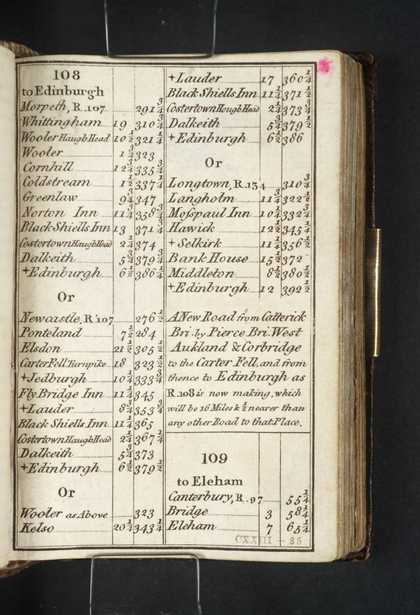 108
to Edinburgh
Morpeth, R.107 291 3/4
Whittingham 19 310 3/4
Wooler Haugh Head 10 1/2 321 1/4
Wooler 323
Cornhill 335
Coldstream 337
Greenlaw 347
Norton Inn 358
Black Shiells Inn 13 371
Costertown Haugh Head 374
Dalkeith 379
+Edinburgh 386
Or
Newcastle, R.107 276 1/2
Ponteland 284
Elsdon 305
Carter Fell Turnpike 18 323
+Jedburgh 333
Fly Bridge Inn 345
+Lauder 353
Black Shiells Inn 365
Costertown Haugh Head 367
Dalkeith 373
+Edinburgh 379
Or
Wooler as Above 323
Kelso 20 1/4 343 1/4
+Lauder 17 360 1/4
Black Shiells Inn 371
Costertown Hough Head 373
Dalkeith 379
+Edinburgh 386
Or
Longtown, R.134 310
Langholm 322
Mosspaul Inn 332
Hawick 345
+Selkirk 356
Bank House 372
Middleton 380
+Edinburgh 12 392
A New Road from Catterick
Bri. by Pierce Bri. West
Aukland & Corbridge
to the Carter Fell, and from
thence to Edinburgh as
R.108 is now making, which
will be 16 Miles & 1/2 nearer than
any other Road to that Place.
109
to Eleham
Canterbury, R.97 55
Bridge 3 58
Eleham 7 65
CXXIII - 85